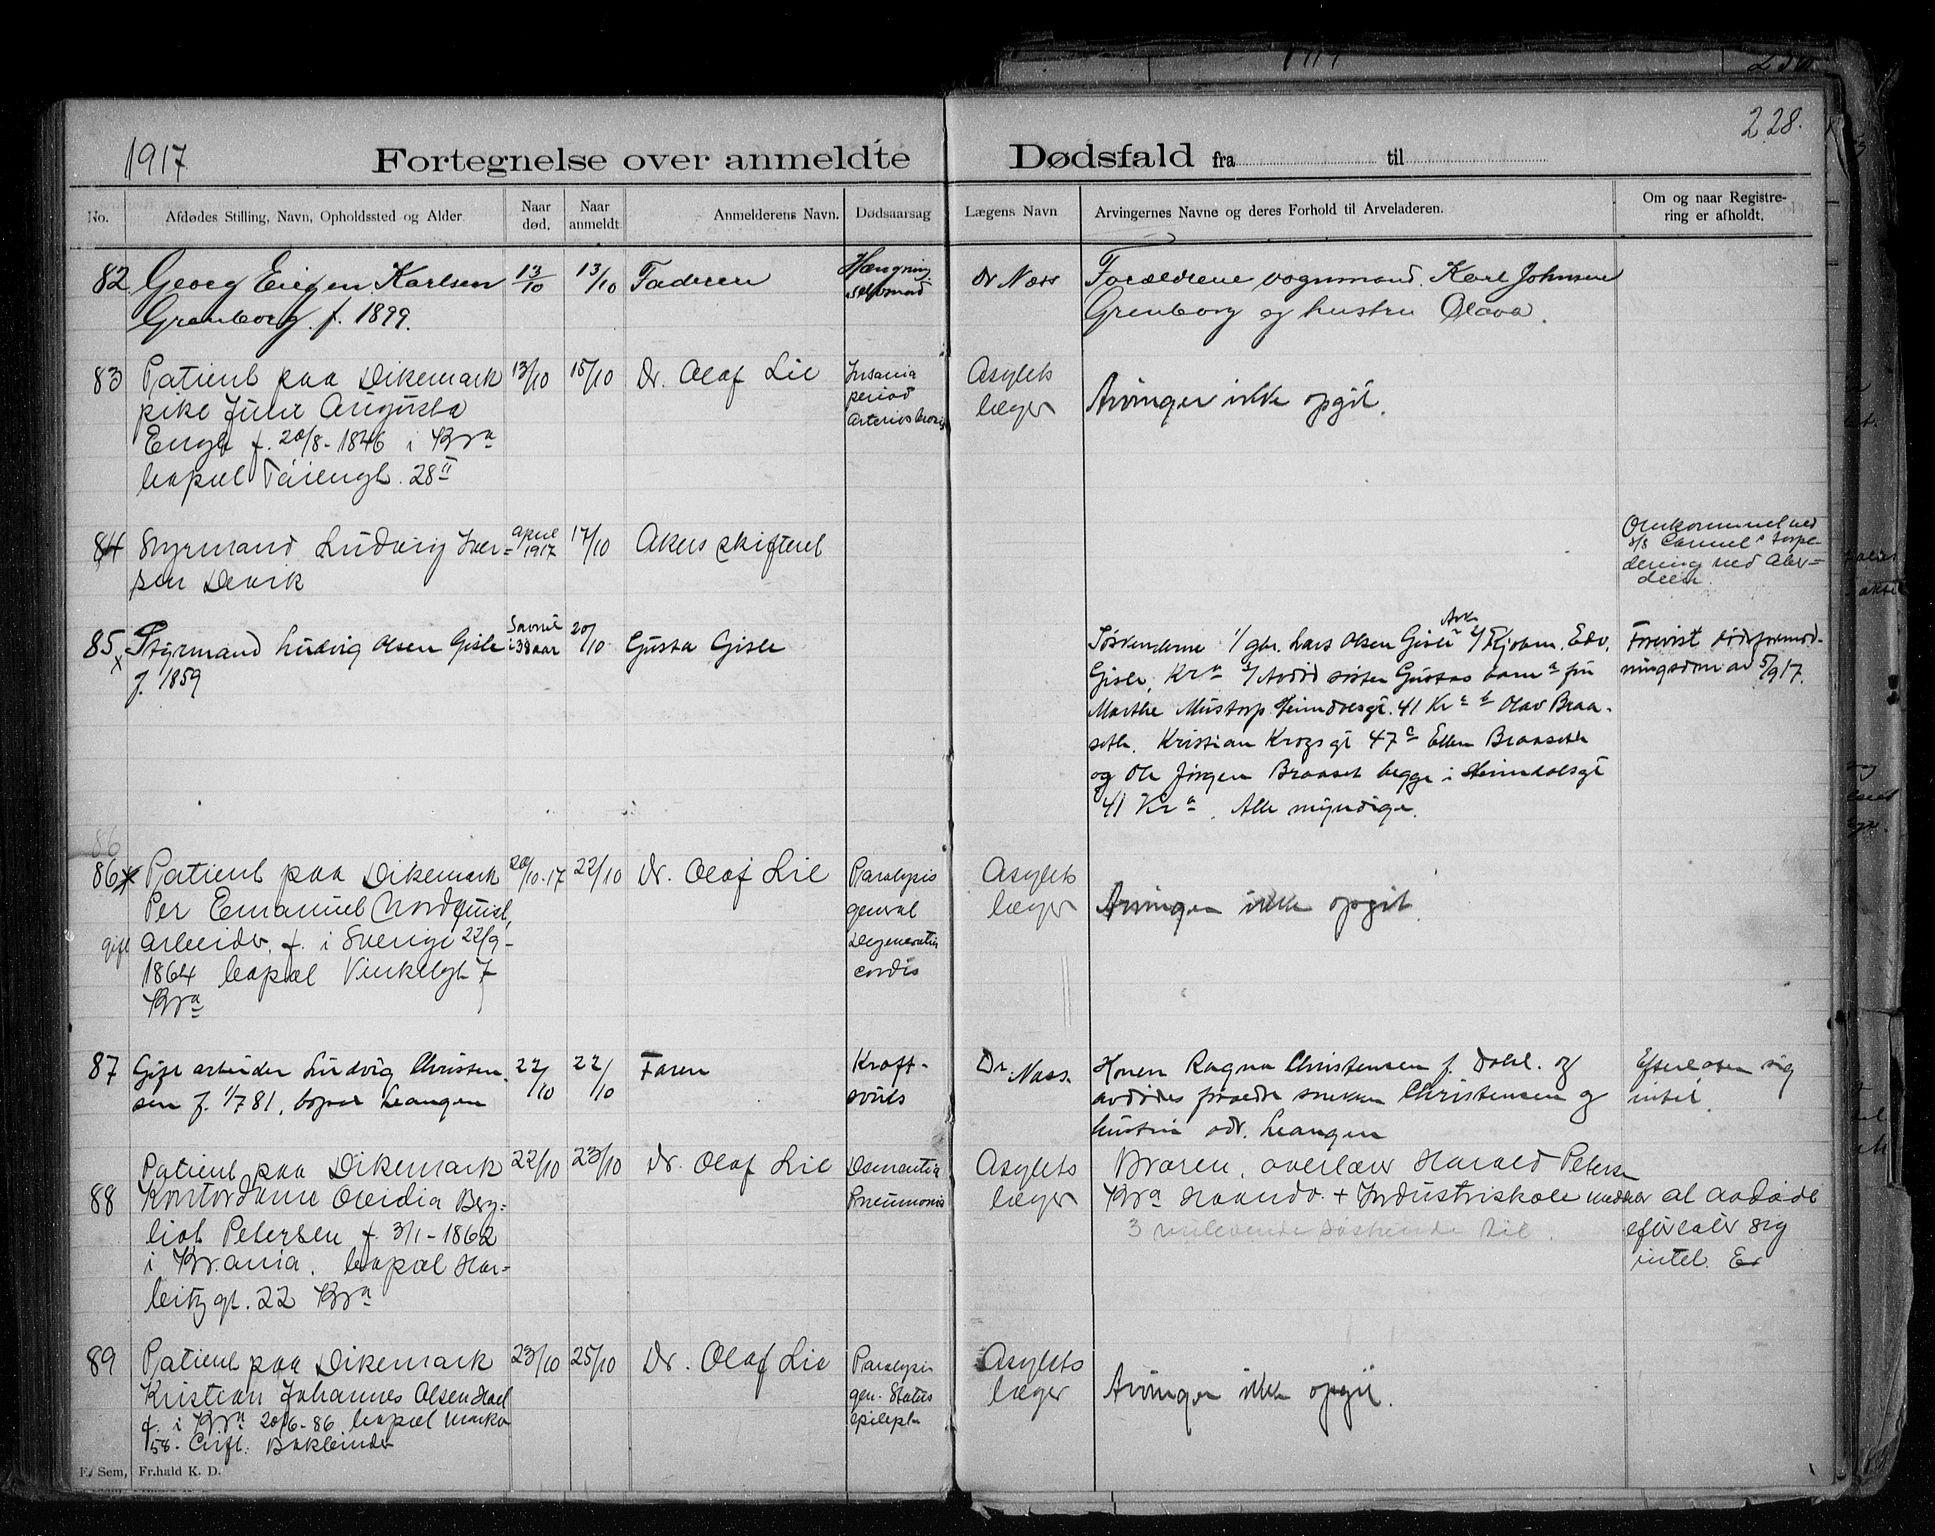 1917
228.
Fortegnelse over anmeldte Dødsfald fra til
No.
Afdødes Stilling, Navn, Opholdssted og Alder
Naar død.
Naar anmeldt
Anmelderens Navn.
Dødsaarsag
Lægens Navn
Arvingernes Navne og deres Forhold til Arveladeren.
Om og naar Registre-
ring er afholdt.
82 Georg Eugen Karlsen 13/10 13/10 Faderen Hængning Dr Næss Forældrene vognmand Karl Johnsen
Grenborg f. 1899. selvmord Grenborg og hustru Olava.
83 Patient paa Dikemark 13/10 15/10 Dr. Olaf Lie Insania Asylets
pike Julie Augusta period læger Arvinger ikke opgit.
Engh f. 20/8-1846 i Kra
bopæl Tøiengt. 28 II
84 Styrmand Ludvig Iver= april 1917 17/10 Akers skifteret
sen Devik
Omkommet ved
s/s Camel's torpe-
dering ved Aber=
deen.
85 x Styrmand Ludvig Olsen Gisle Savnet i 38 aar 20/10 Gusta Gisle
f. 1859
Søskenderne 1/ gbr. Lars Olsen Gisle Ask 2/ Edv.
Gisle, Kra 3/ Avdød søster Gustas barn a fru
Marthe Mustorp Heimdalsgt. 41 Kra b Olav Braa-
seth. Kristian Krogs gt 47 c Ellen Braaseth
og Ole Jørgen Braaset begge i Heimdalsgt
41 Kra. Alle myndige.
Forevist dødsformod-
ningsdom av 5/9 17.
86
86 x Patient paa Dikemark 20/10-17 22/10 Dr. Olaf Lie Paralysis Asylets
Per Emanuel Nordquist, general læger Arvinger ikke opgit.
gift arbeider, f. i Sverige 22/9- Degeneratio
1864 bopæl Vinkelgt 7 cordis
Kra
87 Gift arbeider Ludvig Christen- 22/10 22/10 Faren Kræft- Dr. Næss. Konen Ragna Christensen f. Dahl. og Efterlater sig
sen f. 1/7 81, bopæl Leangen svuls avdødes forældre snekker Christensen og intet.
hustru adr. Leangen
88 Patient paa Dikemark 22/10 23/10 Dr. Olaf Lie Dementia Asylets Broren, overlærer Harald Petersen
Kontordame Ovidia Ber= Pneumonia læger Kra Haandv. + Industriskole meddeler at avdøde
liot Petersen f. 3/1-1862 3 søskende til. efterlater sig
i Kr.ania. bopæl Har= intet. Er
bitz gt. 22 Kra
89 Patient paa Dikemark 23/10 25/10 Dr. Olaf Lie Paralysis Asylets
Kristian Johannes Olsen gen. Status læger Arvinger ikke opgit.
f. i Kra 20/6-86 bopæl epilept.
58. Bokbinder
Fr.hald K. D.